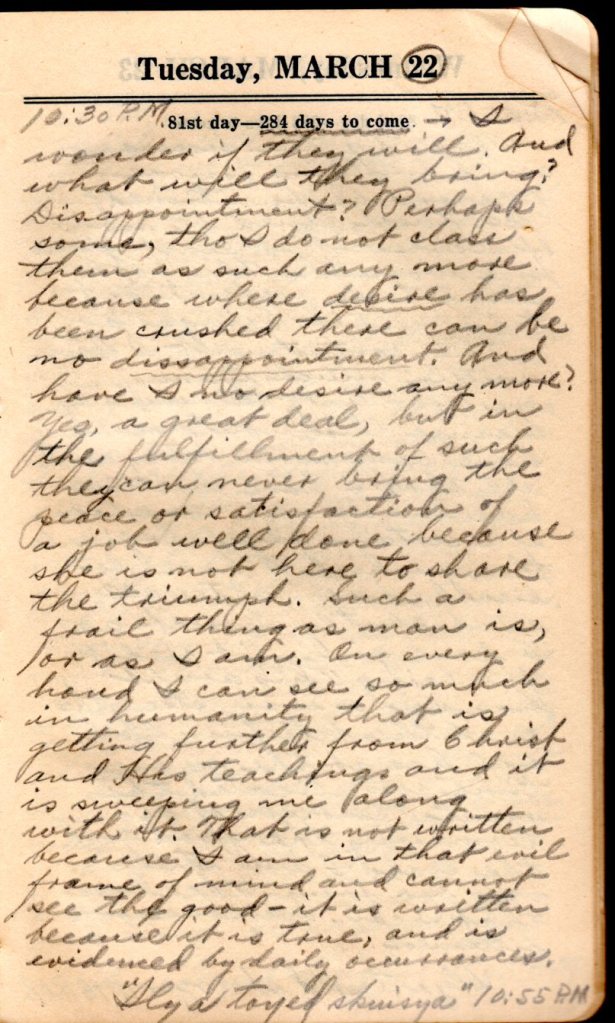 Tuesday, MARCH 22
10:30 P.M. 81st day—284 days to come. → I
wonder if they will. And
what will they bring?
Disappointment? Perhaps
some, tho I do not class
them as such any more
because where desire has
been crushed there can be
no dissappointment. And
have I no desire any more?
Yes, a great deal, but in
the fulfillment of such
they can never bring the
peace or satisfaction of
a job well done because
she is not here to share
the triumph. Such a
frail thing as man is,
or as I am. On every
hand I can see so much
in humanity that is
getting further from Christ
and His teachings and it
is sweeping me along
with it. That is not written
because I am in that evil
frame of mind and cannot
see the good – it is written
because it is true, and is
evidenced by daily occurrances.
"Ilya toyed" 10:55 P.M.